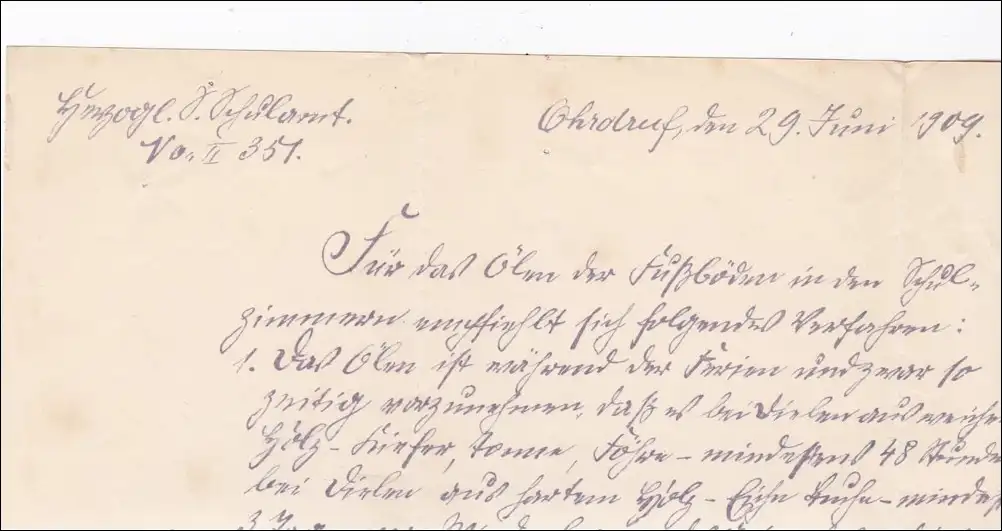 Herzogl. S. Schulamt.
No. II 351.
Ohrdruf, den 29. Juni 1909.
Für das Ölen der Fußböden in den Schul-
zimmern empfiehlt sich folgendes Verfahren:
1. Das Ölen ist während der Ferien und zwar so
zeitig vorzunehmen, daß es bei Dielen aus weiche
Holz - Kiefer, Tanne, Föhre - mindestens 48 Stunde
bei Dielen aus hartem Holz - Eiche Buche - mindes
3 Tage